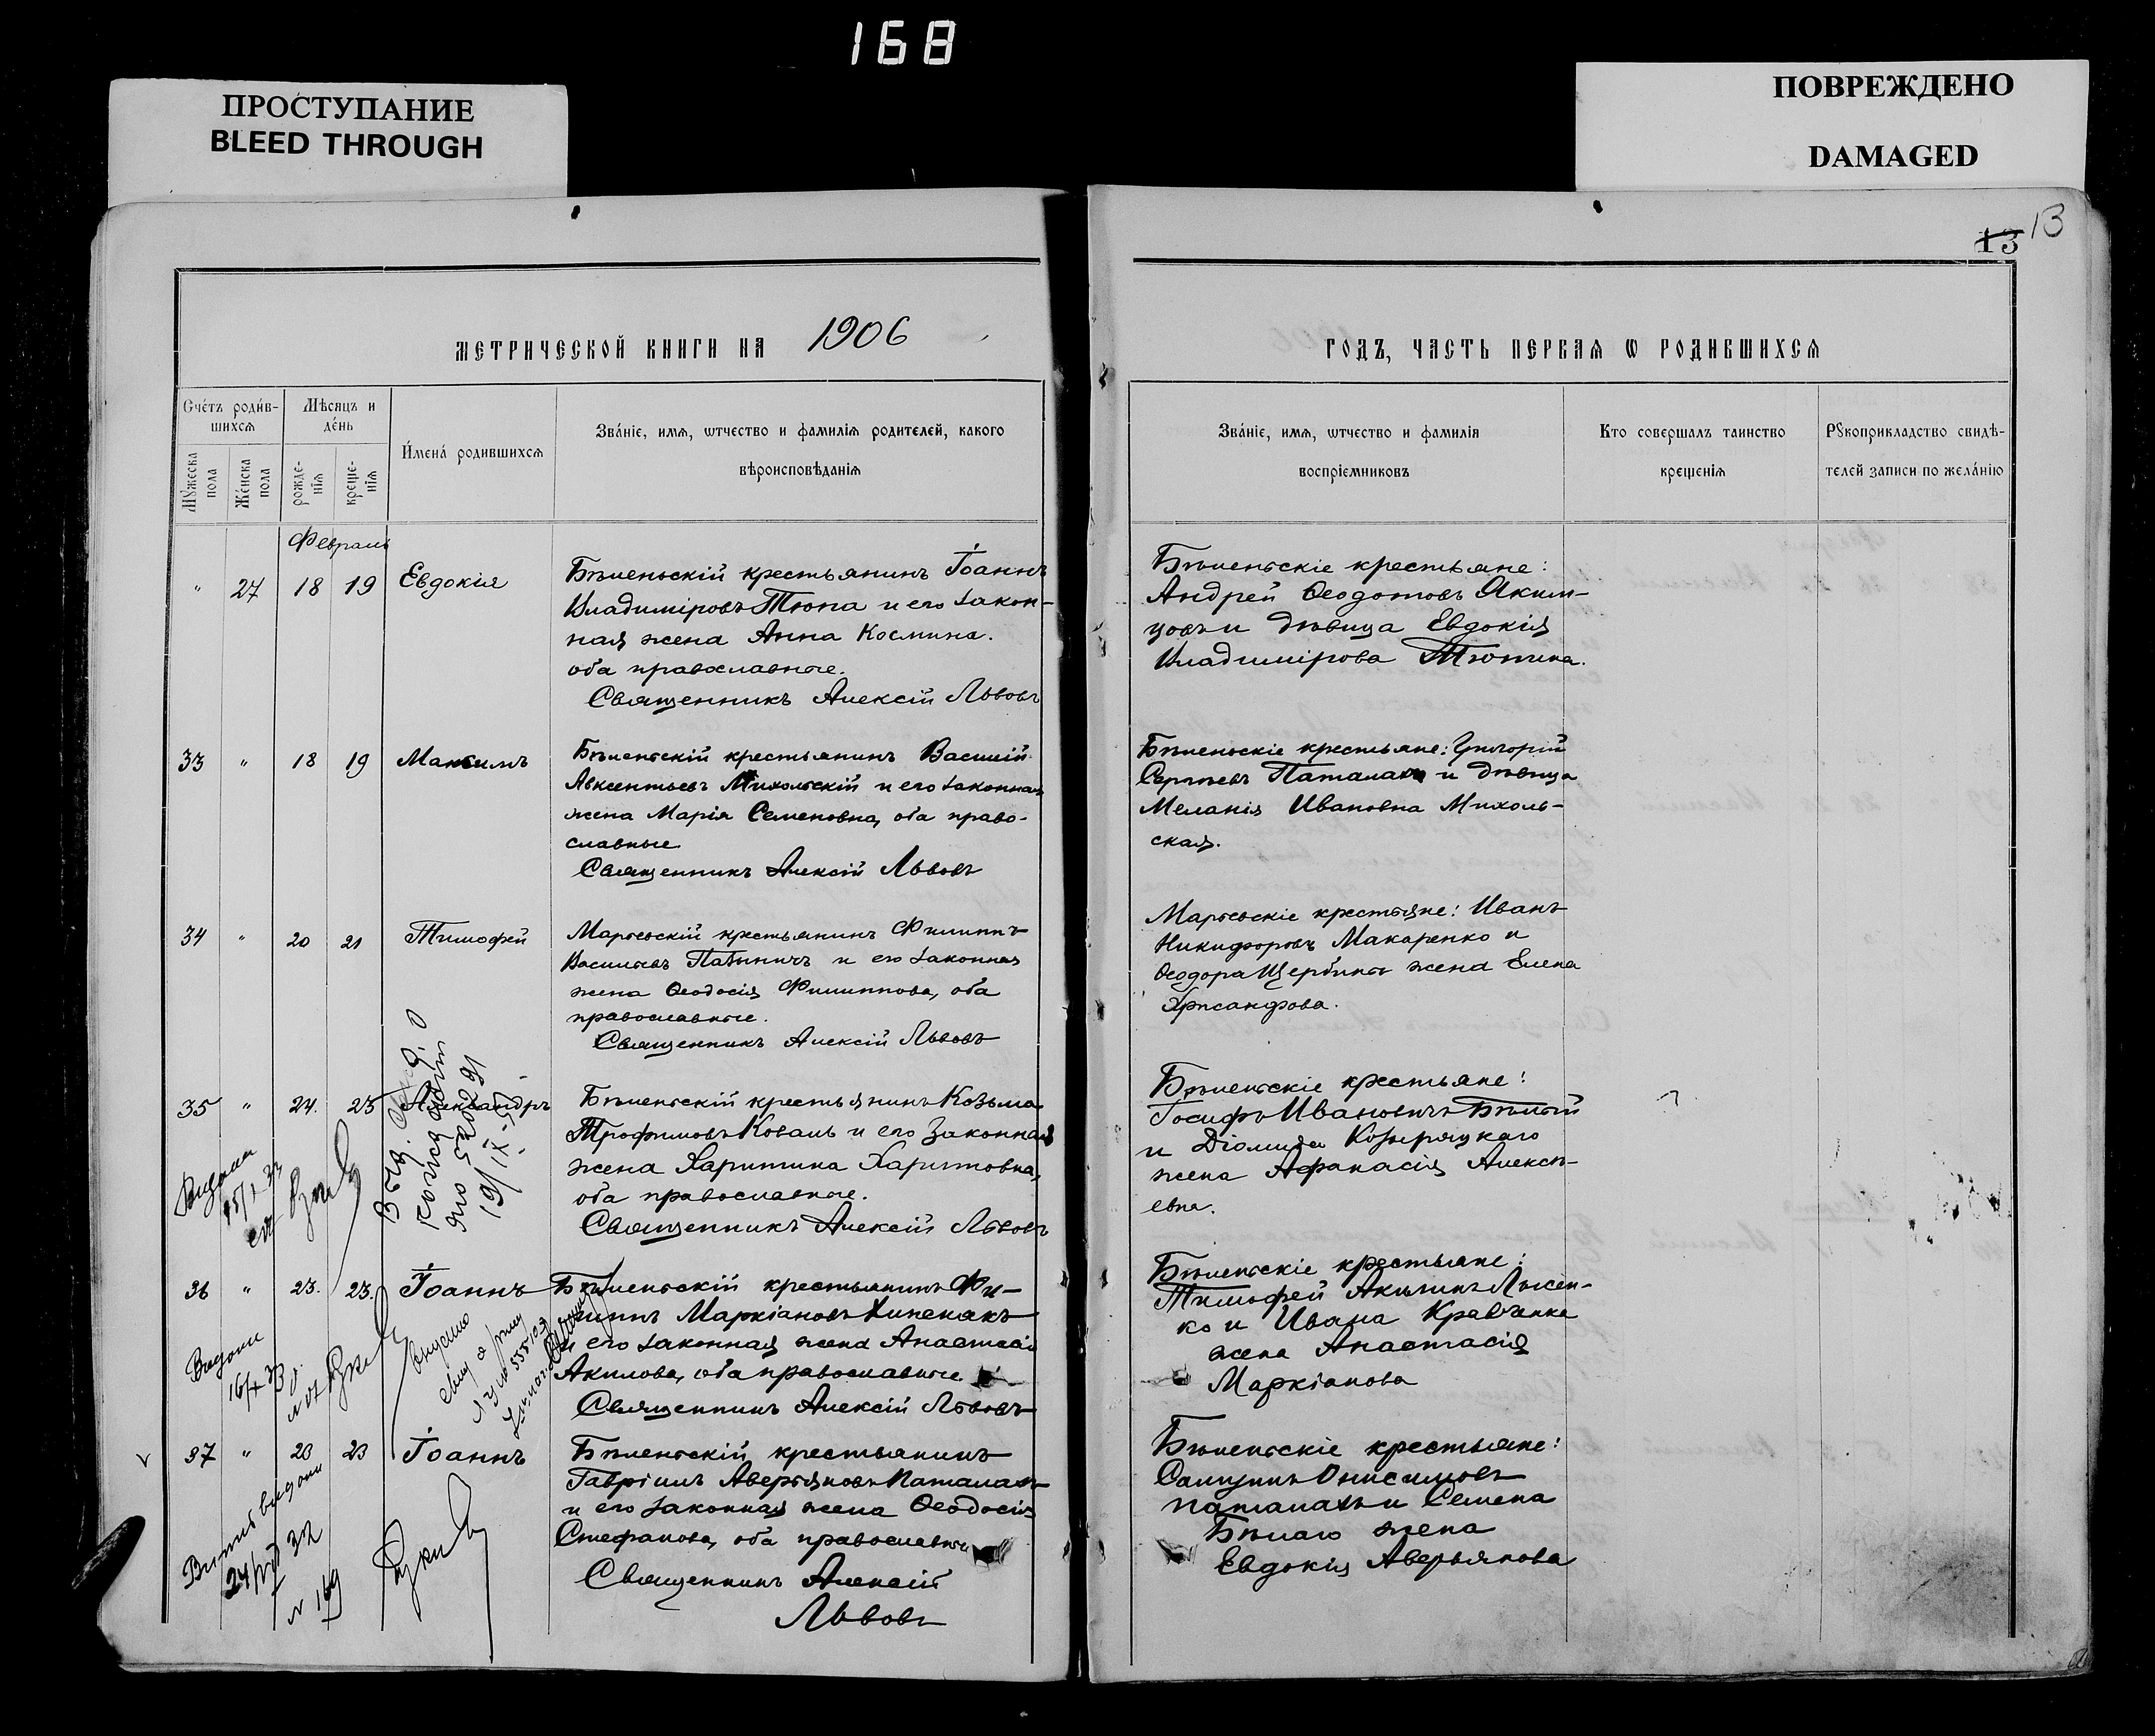 168
ПРОСТУПАНИЕ
BLEED THROUGH
ПОВРЕЖДЕНО
DAMAGED
13 13
МЕТРИЧЕСКОЙ КНИГИ НА 1906
ГОДЪ, ЧАСТЬ ПЕРВАЯ Ѡ РОДИВШИХСЯ
Счéтъ родúв-
шихсѧ
Мѣсяцъ и
дéнь
Мꙋжеска
пола
Жéнска
пола
рожде-
нїѧ
креще-
нїѧ
И́менá родившихсѧ
Звáнїе, имѧ, ѡтчество и фамилїѧ родителей, какого
вѣроисповѣданїѧ
Звáнїе, имѧ, ѡтчество и фамилїѧ
воспрїемниковъ
Кто совершалъ таинство
крещенїѧ
Рꙋкоприкладство свидѣ-
телей записи по желáнїю
Февраль
" 27 18 19 Евдокія
Бѣленьскій крестьянинъ Іоаннъ
Владиміровъ Тюпа и его закон-
ная жена Анна Космина.
оба православные.
Священникъ Алексій Львовъ
Бѣленьскіе крестьяне:
Андрей Ѳеодотовъ Яким-
цовъ и дѣвица Евдокія
Владимірова Тюпина.
33 " 18 19 Максимъ
Бѣленьскій крестьянинъ Василій
Авксентьевъ Михольскій и его законная
жена Марія Семеновна, оба право-
славные
Священникъ Алексій Львовъ
Бѣленьскіе крестьяне: Григорій
Сергѣевъ Паталахъ и дѣвица
Меланія Ивановна Михоль-
ская.
34 " 20 21 Тимофей
Марьевскій крестьянинъ Филиппъ
Васильевъ и его законная
жена Ѳеодосія Филиппова, оба
православные.
Священникъ Алексій Львовъ
Марьевскіе крестьяне: Иванъ
Никифоровъ Макаренко и
Ѳеодора Щербины жена Елена
Хрисанфова.
35 " 24. 25 Александръ
Бѣленьскій крестьянинъ Козьма
Трофимовъ Коваль и его законная
жена Харитина Харитовна,
оба православные.
Священникъ Алексій Львовъ
Бѣленьскіе крестьяне:
Іосифъ Ивановичъ Бѣлый
и Діомида Козыряцкаго
жена Афанасія Алексѣ-
евна.
36 " 23. 23. Іоаннъ
Бѣленьскій крестьянинъ Фи-
липпъ Маркіановъ
и его законная жена Анастасія
Акилова, оба православные
Священникъ Алексій Львовъ
Бѣленьскіе крестьяне:
Тимофей Акилинъ Лысен-
ко и Ивана Кравченка
жена Анастасія
Маркіанова
37 " 23 23 Іоаннъ
Бѣленьскій крестьянинъ
Гавріилъ Аверьяновъ Паталахъ
и его законная жена Ѳеодосія
Стефанова, оба православные
Священникъ Алексій
Львовъ
Бѣленьскіе крестьяне:
Самуилъ Онисимовъ
Паталахъ и Семена
Бѣлаго жена
Евдокія Аверьянова